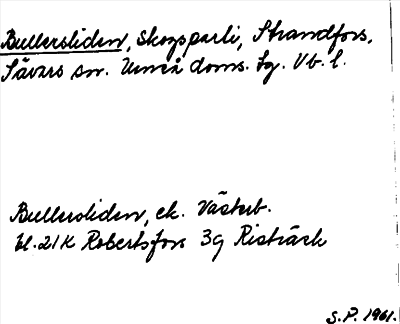 Bullersliden, skogsparti, Strandfors,
Sävars sn. Umeå doms. tg. Vb. l.
Bullersliden, ek. Västerb.
bl. 21K Robertsfors 3g Risträsk
S.P. 1961.